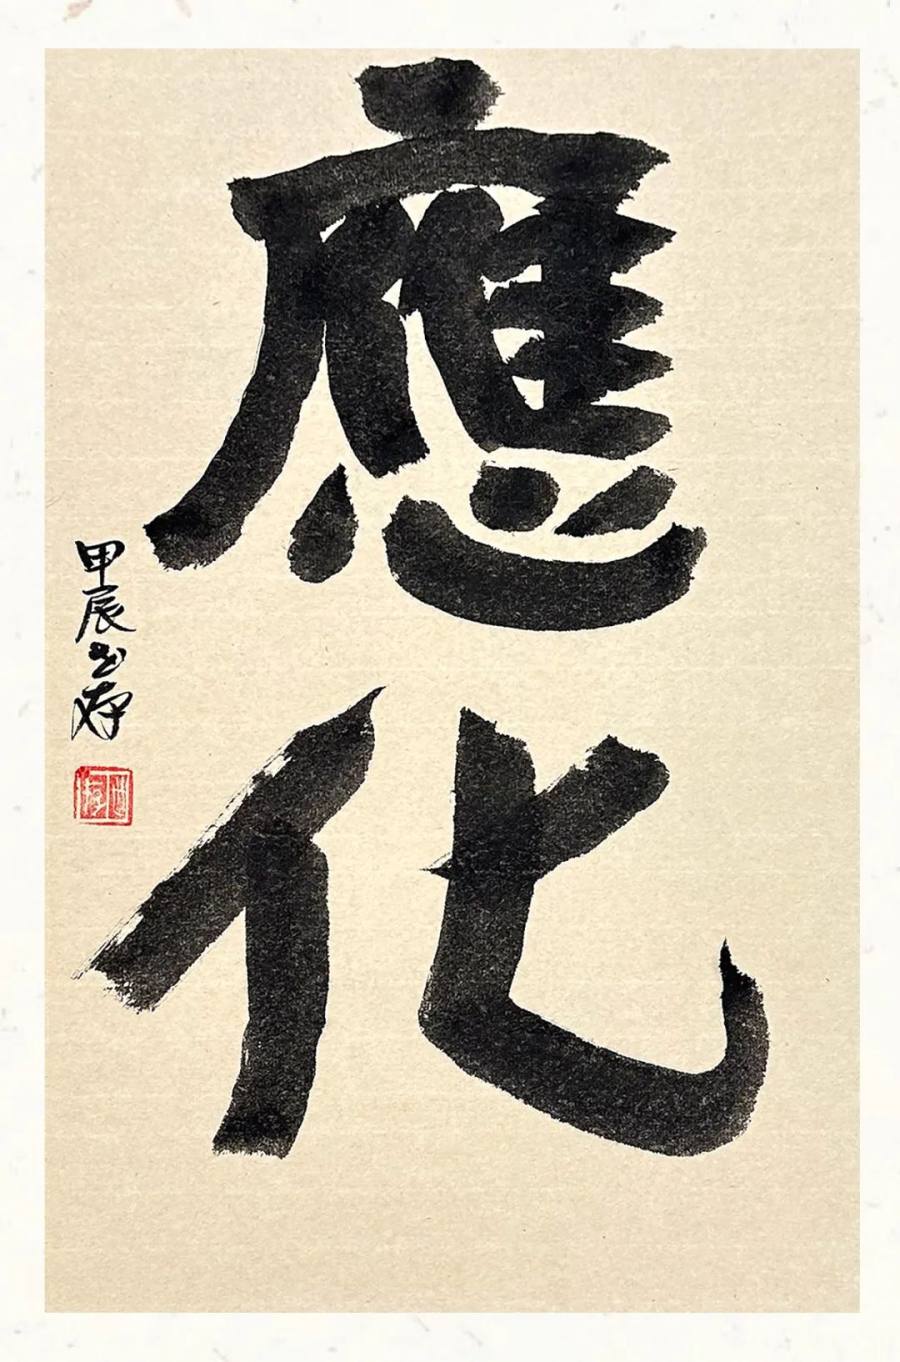 應化
甲辰